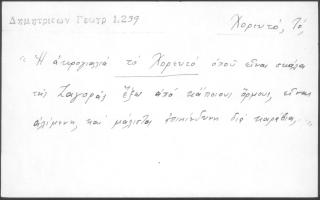 Δημητριέων Γεωγρ 1.239
Χορευτό, Τό,
"Ἡ ἀκρογιαλιά τό Χορευτό ὁποῦ εἶναι σκάλα
τῆς Ζαγορᾶς ἔξω ἀπό κάποιους ὅρμους, εἶναι
ἀλίμενη, καί μάλιστα ἐπικίνδυνη διά καράβια.